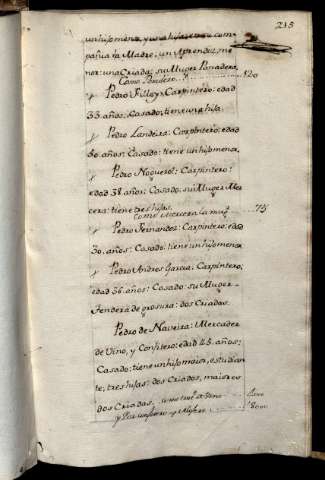 215
un hijo menor, y una hija en su com-
pañia: su Madre, un Aprendiz me-
nor: una Criada: su Muger Panadera,
Como Panadera 120
Pedro Filloy: Carpintero: edad
33. años: Casado, tiene una hija.
Pedro Landeira: Carpintero: edad
50. años: Casado: tiene un hijo menor,
Pedro Noguerol: Carpintero:
edad 38. años: Casado: su Muger Mer-
cera: tiene tres hijas.
Como Mercera la muger 75
Pedro Fernandez: Carpintero, edad
30. años: Casado: tiene un hijo menor
Pedro Andres Garcia: Carpintero;
edad 36. años: Casado: su Muger
Tendera de grosura: dos Criadas.
Pedro de Naveira: Mercader
de Vino, y Confitero: edad 45. años:
Casado: tiene un hijo maior, estudian-
te; tres hijas: dos Criados, maiores
dos Criadas.